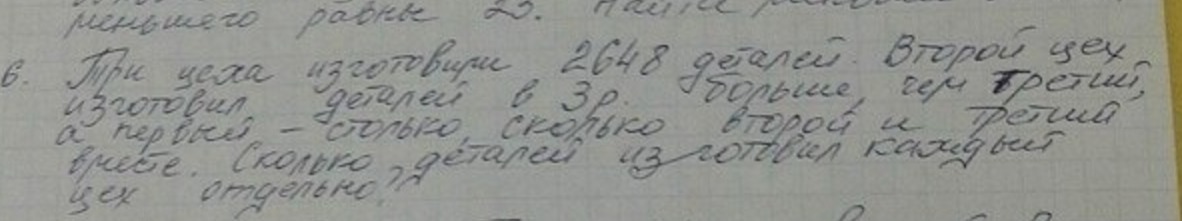 меньшего равны 25. Найти
6. Три цеха изготовили 2648 деталей. Второй цех
изготовил деталей в 3р. больше, чем третий,
а первый - столько, сколько второй и третий
вместе. Сколько деталей изготовил каждый
цех отдельно?